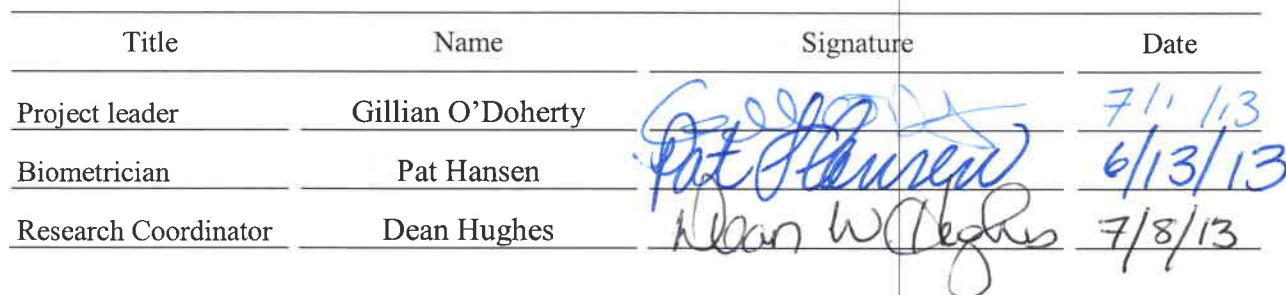 Title Name Signature Date
Project leader Gillian O'Doherty 7/1/13
Biometrician Pat Hansen Pat Hansen 6/13/13
Research Coordinator Dean Hughes Dean W Hughes 7/8/13